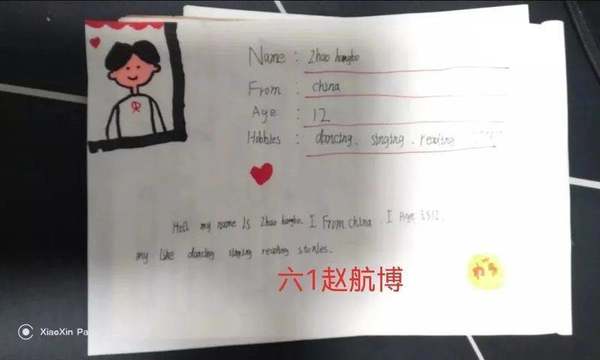 Name: Zhao hangbo
From: China
Age: 12
Hobbies: dancing, singing, reading
Hell my name is Zhao hangbo. I From China I Age is 12.
my like dancing singing reading stories.
六1赵航博
XiaoXin Pa